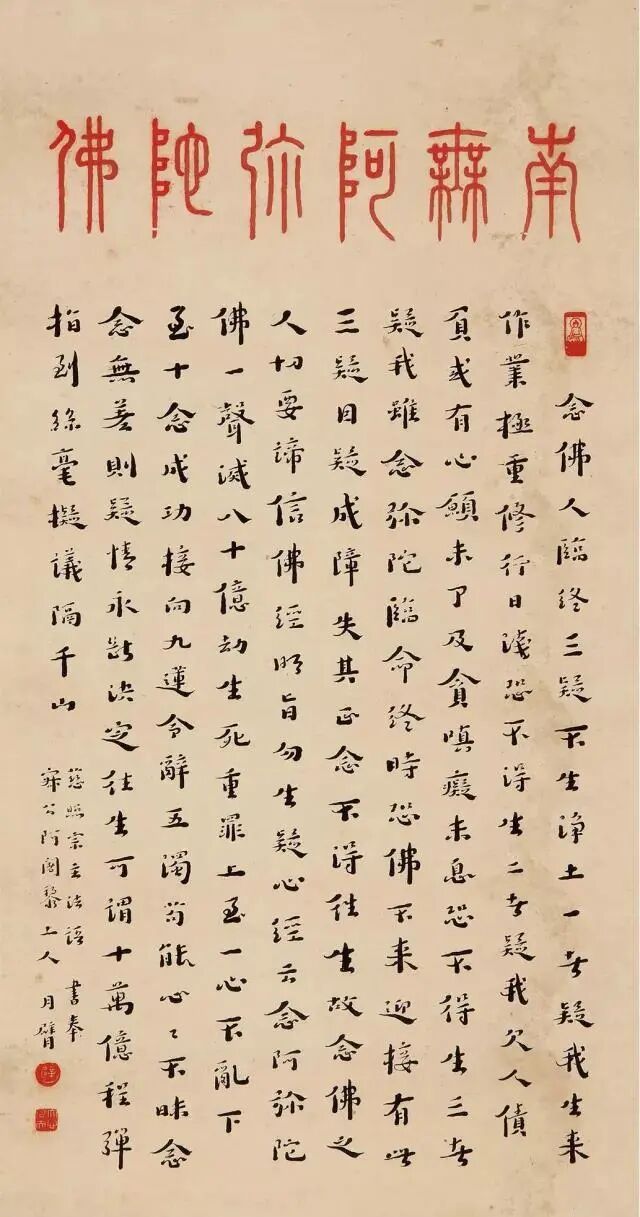 南無阿弥陀佛
念佛人臨终三疑不生淨土一者疑我生来
作業極重修行日淺恐不得生二者疑我欠人債
負或有心願未了及貪嗔癡未息恐不得生三者
疑我雖念弥陀臨命终時恐佛不来迎接有此
三疑因疑成障失其正念不得往生故念佛之
人切要諦信佛經明旨勿生疑心經云念阿弥陀
佛一聲滅八十億劫生死重罪上至一心不亂下
至十念成功接向九蓮令辭五濁苟能心〻不昧念
念無差則疑情永斷決定往生可謂十萬億程彈
指到絲毫擬議隔千山
慈照宗主法語 書奉
寂公阿闍黎上人 月臂